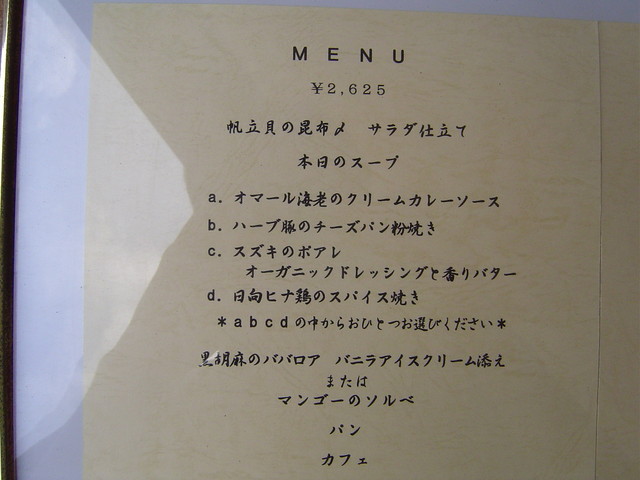 MENU
¥2,625
帆立貝の昆布〆 サラダ仕立て
本日のスープ
a. オマール海老のクリームカレーソース
b. ハーブ豚のチーズパン粉焼き
c. スズキのポアレ
オーガニックドレッシングと香りバター
d. 日向ヒナ鶏のスパイス焼き
*abcdの中からおひとつお選びください*
黒胡麻のババロア バニラアイスクリーム添え
または
マンゴーのソルベ
パン
カフェ